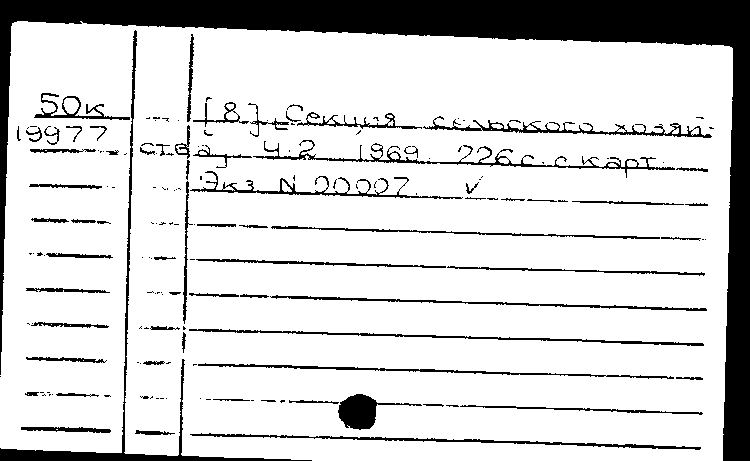 50к [8] [Секция сельского хозяй-
19977 ства] Ч.2 1969. 226с. с карт.
Экз. N 00007. ✓